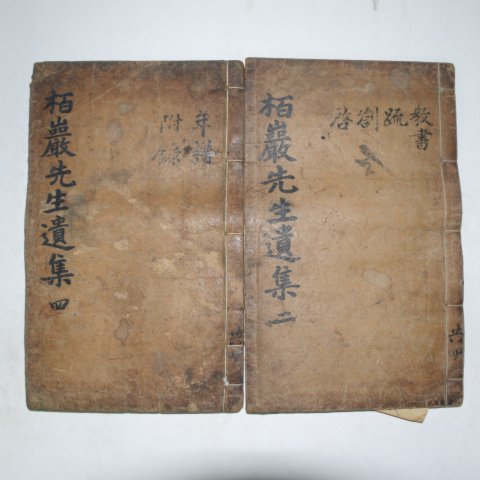 栢巖先生遺集 二
教書
疏
劄
啓
共四
栢巖先生遺集 四
年譜
附錄